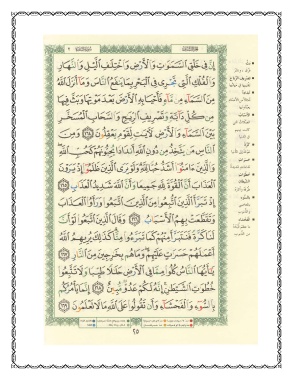 إِنَّ فِي خَلْقِ السَّمَٰوَٰتِ وَالْأَرْضِ وَاخْتِلَٰفِ الَّيْلِ وَالنَّهَارِ
وَالْفُلْكِ الَّتِي تَجْرِي فِي الْبَحْرِ بِمَا يَنفَعُ النَّاسَ وَمَا أَنزَلَ اللَّهُ
مِنَ السَّمَاءِ مِن مَّاءٍ فَأَحْيَا بِهِ الْأَرْضَ بَعْدَ مَوْتِهَا وَبَثَّ فِيهَا
مِن كُلِّ دَابَّةٍ وَتَصْرِيفِ الرِّيَٰحِ وَالسَّحَابِ الْمُسَخَّرِ
بَيْنَ السَّمَاءِ وَالْأَرْضِ لَءَايَٰتٍ لِّقَوْمٍ يَعْقِلُونَ ١٦٤ وَمِنَ
النَّاسِ مَن يَتَّخِذُ مِن دُونِ اللَّهِ أَندَادًا يُحِبُّونَهُمْ كَحُبِّ اللَّهِ
وَالَّذِينَ ءَامَنُوا أَشَدُّ حُبًّا لِّلَّهِ وَلَوْ يَرَى الَّذِينَ ظَلَمُوا إِذْ يَرَوْنَ
الْعَذَابَ أَنَّ الْقُوَّةَ لِلَّهِ جَمِيعًا وَأَنَّ اللَّهَ شَدِيدُ الْعَذَابِ ١٦٥
إِذْ تَبَرَّأَ الَّذِينَ اتُّبِعُوا مِنَ الَّذِينَ اتَّبَعُوا وَرَأَوُا الْعَذَابَ
وَتَقَطَّعَتْ بِهِمُ الْأَسْبَابُ ١٦٦ وَقَالَ الَّذِينَ اتَّبَعُوا لَوْ أَنَّ
لَنَا كَرَّةً فَنَتَبَرَّأَ مِنْهُمْ كَمَا تَبَرَّءُوا مِنَّا كَذَٰلِكَ يُرِيهِمُ اللَّهُ
أَعْمَٰلَهُمْ حَسَرَٰتٍ عَلَيْهِمْ وَمَا هُم بِخَٰرِجِينَ مِنَ النَّارِ ١٦٧
يَٰأَيُّهَا النَّاسُ كُلُوا مِمَّا فِي الْأَرْضِ حَلَٰلًا طَيِّبًا وَلَا تَتَّبِعُوا
خُطُوَٰتِ الشَّيْطَٰنِ إِنَّهُ لَكُمْ عَدُوٌّ مُّبِينٌ ١٦٨ إِنَّمَا يَأْمُرُكُم
بِالسُّوءِ وَالْفَحْشَاءِ وَأَن تَقُولُوا عَلَى اللَّهِ مَا لَا تَعْلَمُونَ ١٦٩
٢٥